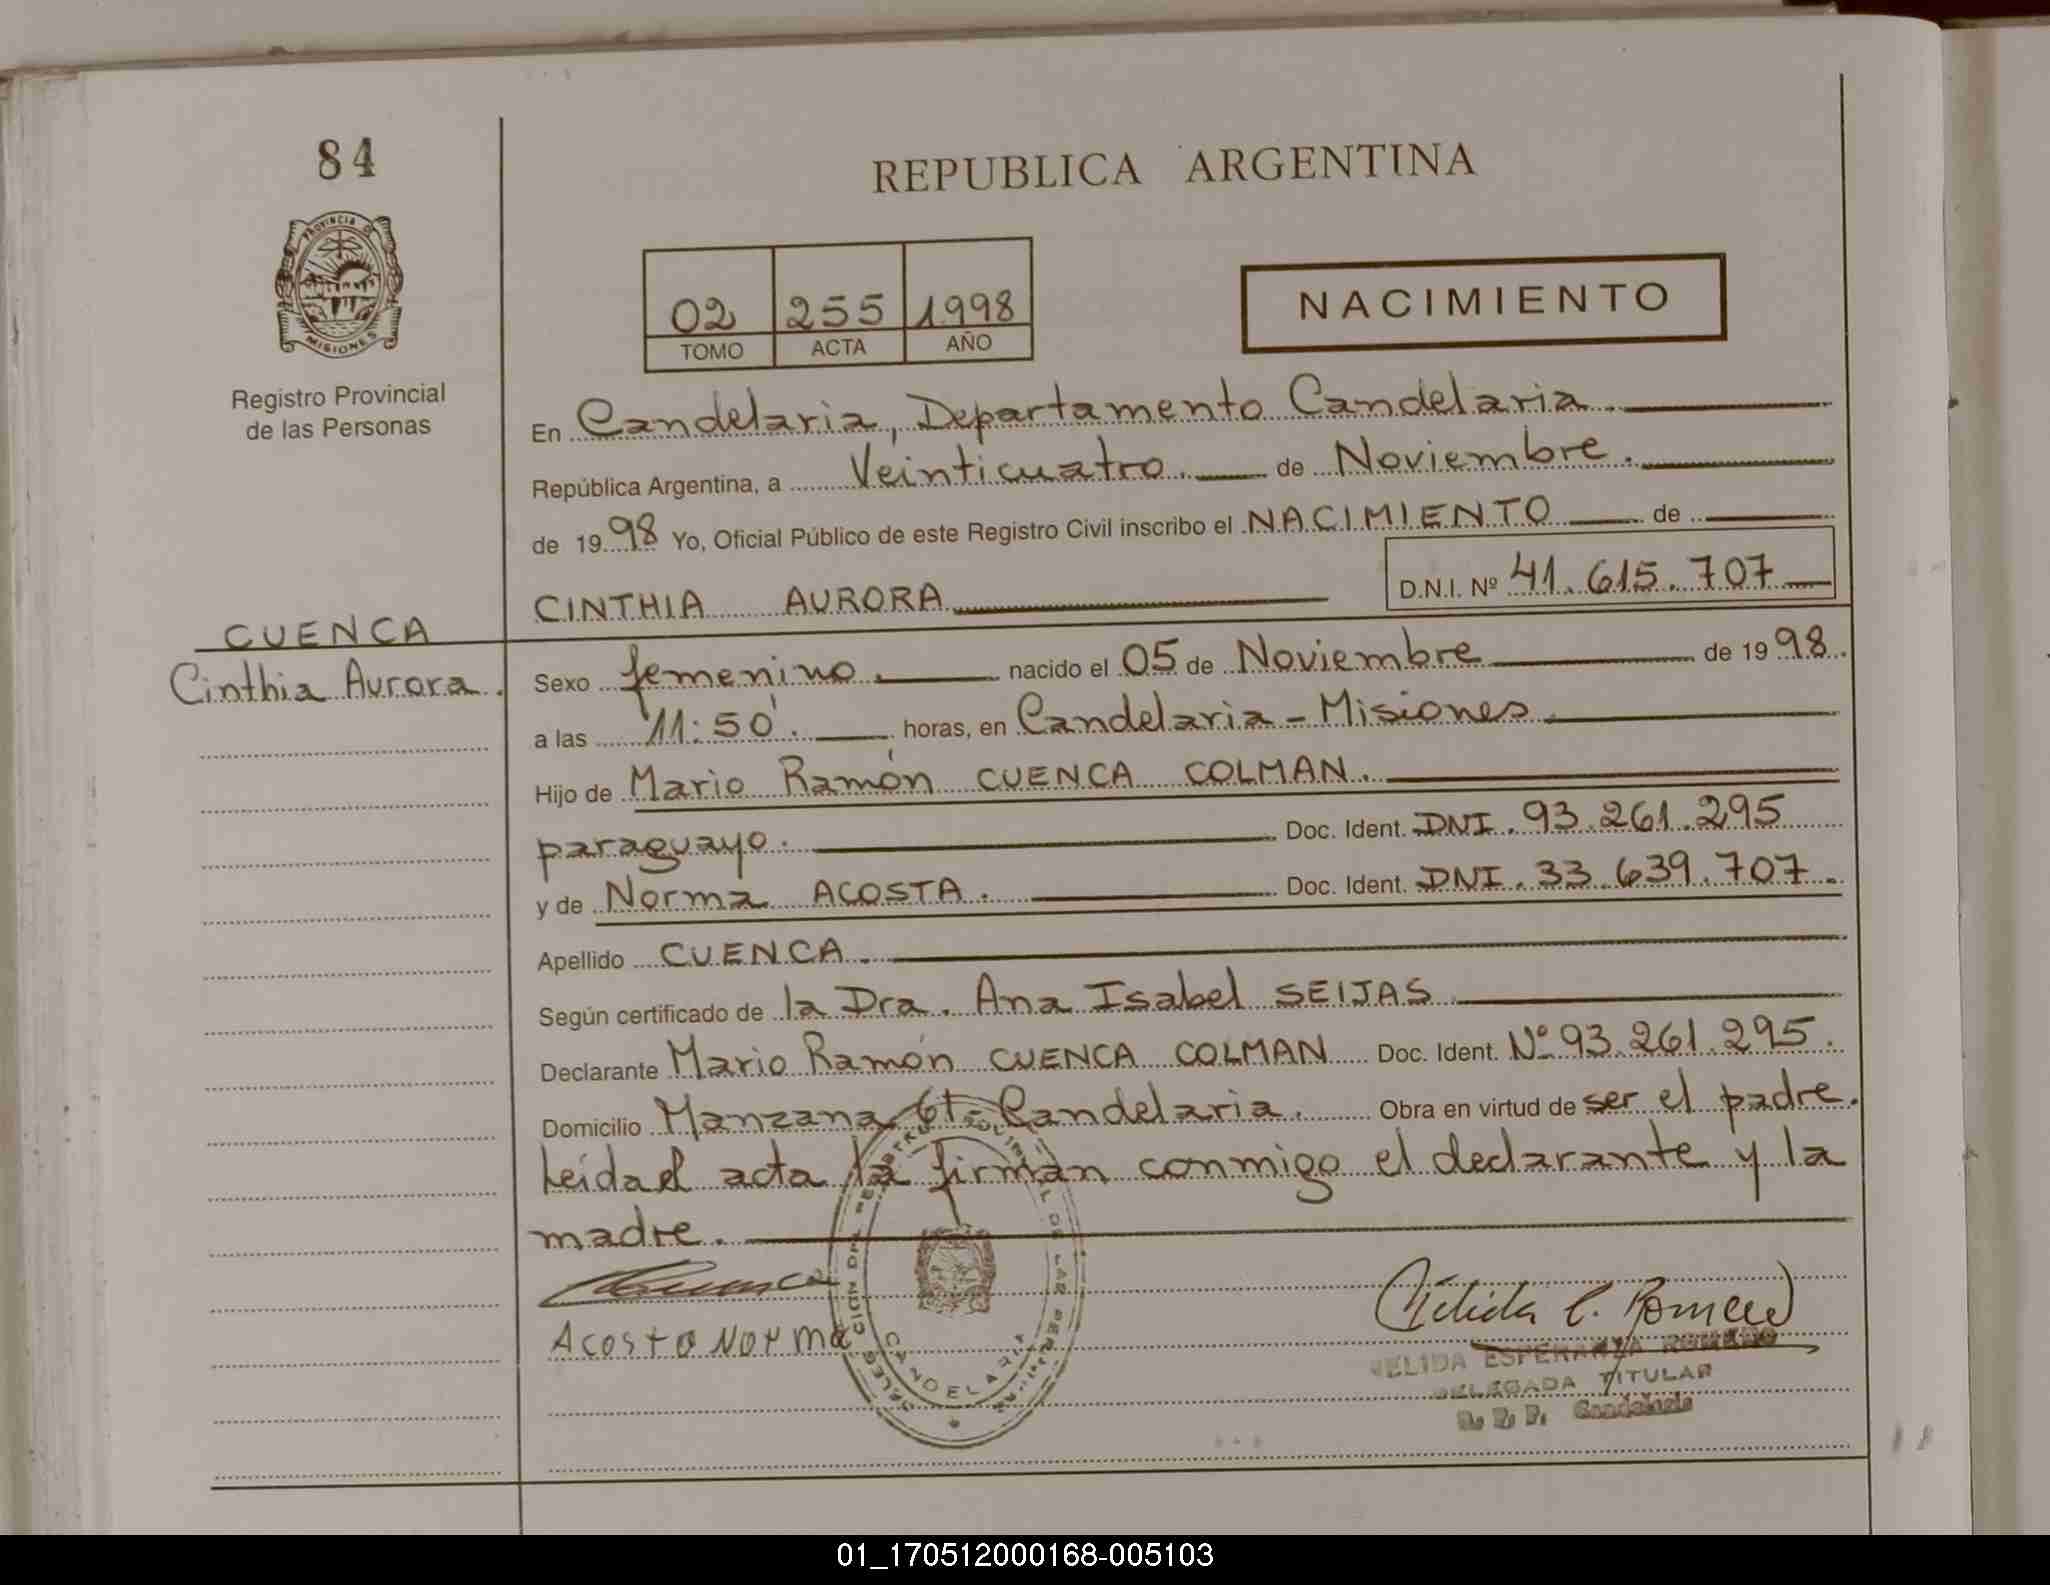 84
REPUBLICA ARGENTINA
PROVINCIA DE
MISIONES
Registro Provincial
de las Personas
02 255 1998
TOMO ACTA AÑO
NACIMIENTO
En Candelaria, Departamento Candelaria.
República Argentina, a Veinticuatro. de Noviembre.
de 19 98 Yo, Oficial Público de este Registro Civil inscribo el NACIMIENTO de
CINTHIA AURORA D.N.I. Nº 41.615.707
CUENCA
Cinthia Aurora.
Sexo femenino. nacido el 05 de Noviembre de 19 98.
a las 11:50'. horas, en Candelaria - Misiones.
Hijo de Mario Ramón CUENCA COLMAN.
paraguayo. Doc. Ident. DNI. 93.261.295
y de Norma ACOSTA. Doc. Ident. DNI. 33.639.707.
Apellido CUENCA.
Según certificado de la Dra. Ana Isabel SEIJAS
Declarante Mario Ramón CUENCA COLMAN Doc. Ident. Nº 93.261.295.
Domicilio Manzana Candelaria. Obra en virtud de ser el padre.
Leída el acta la firman conmigo el declarante y la
madre.
Cuenca
Acosta Norma
CANDELARIA
Nélida E. Romero
NELIDA ESPERANZA ROMERO
DELEGADA TITULAR
R. P. P. Candelaria
01_170512000168-005103